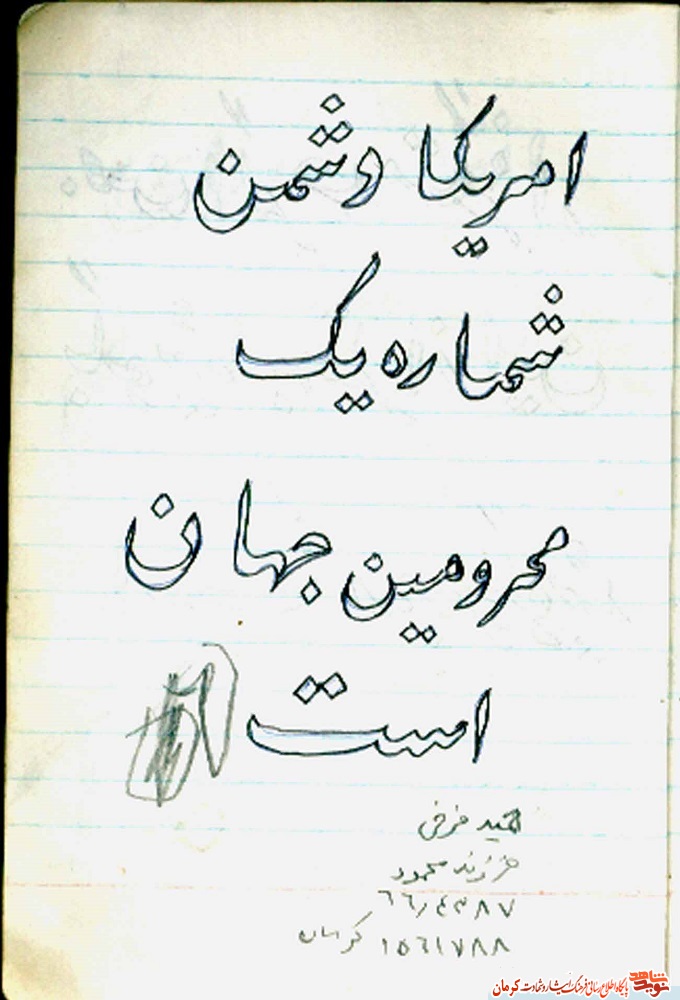 امریکا دشمن
شماره یک
محرومین جهان
است
حمید فرخی
فرزند محمود
۶۶/۴۳۸۷
۱۵۶۱۷۸۸ کرمان
نوید شاهد
پایگاه اطلاع رسانی فرهنگ ایثار و شهادت کرمان